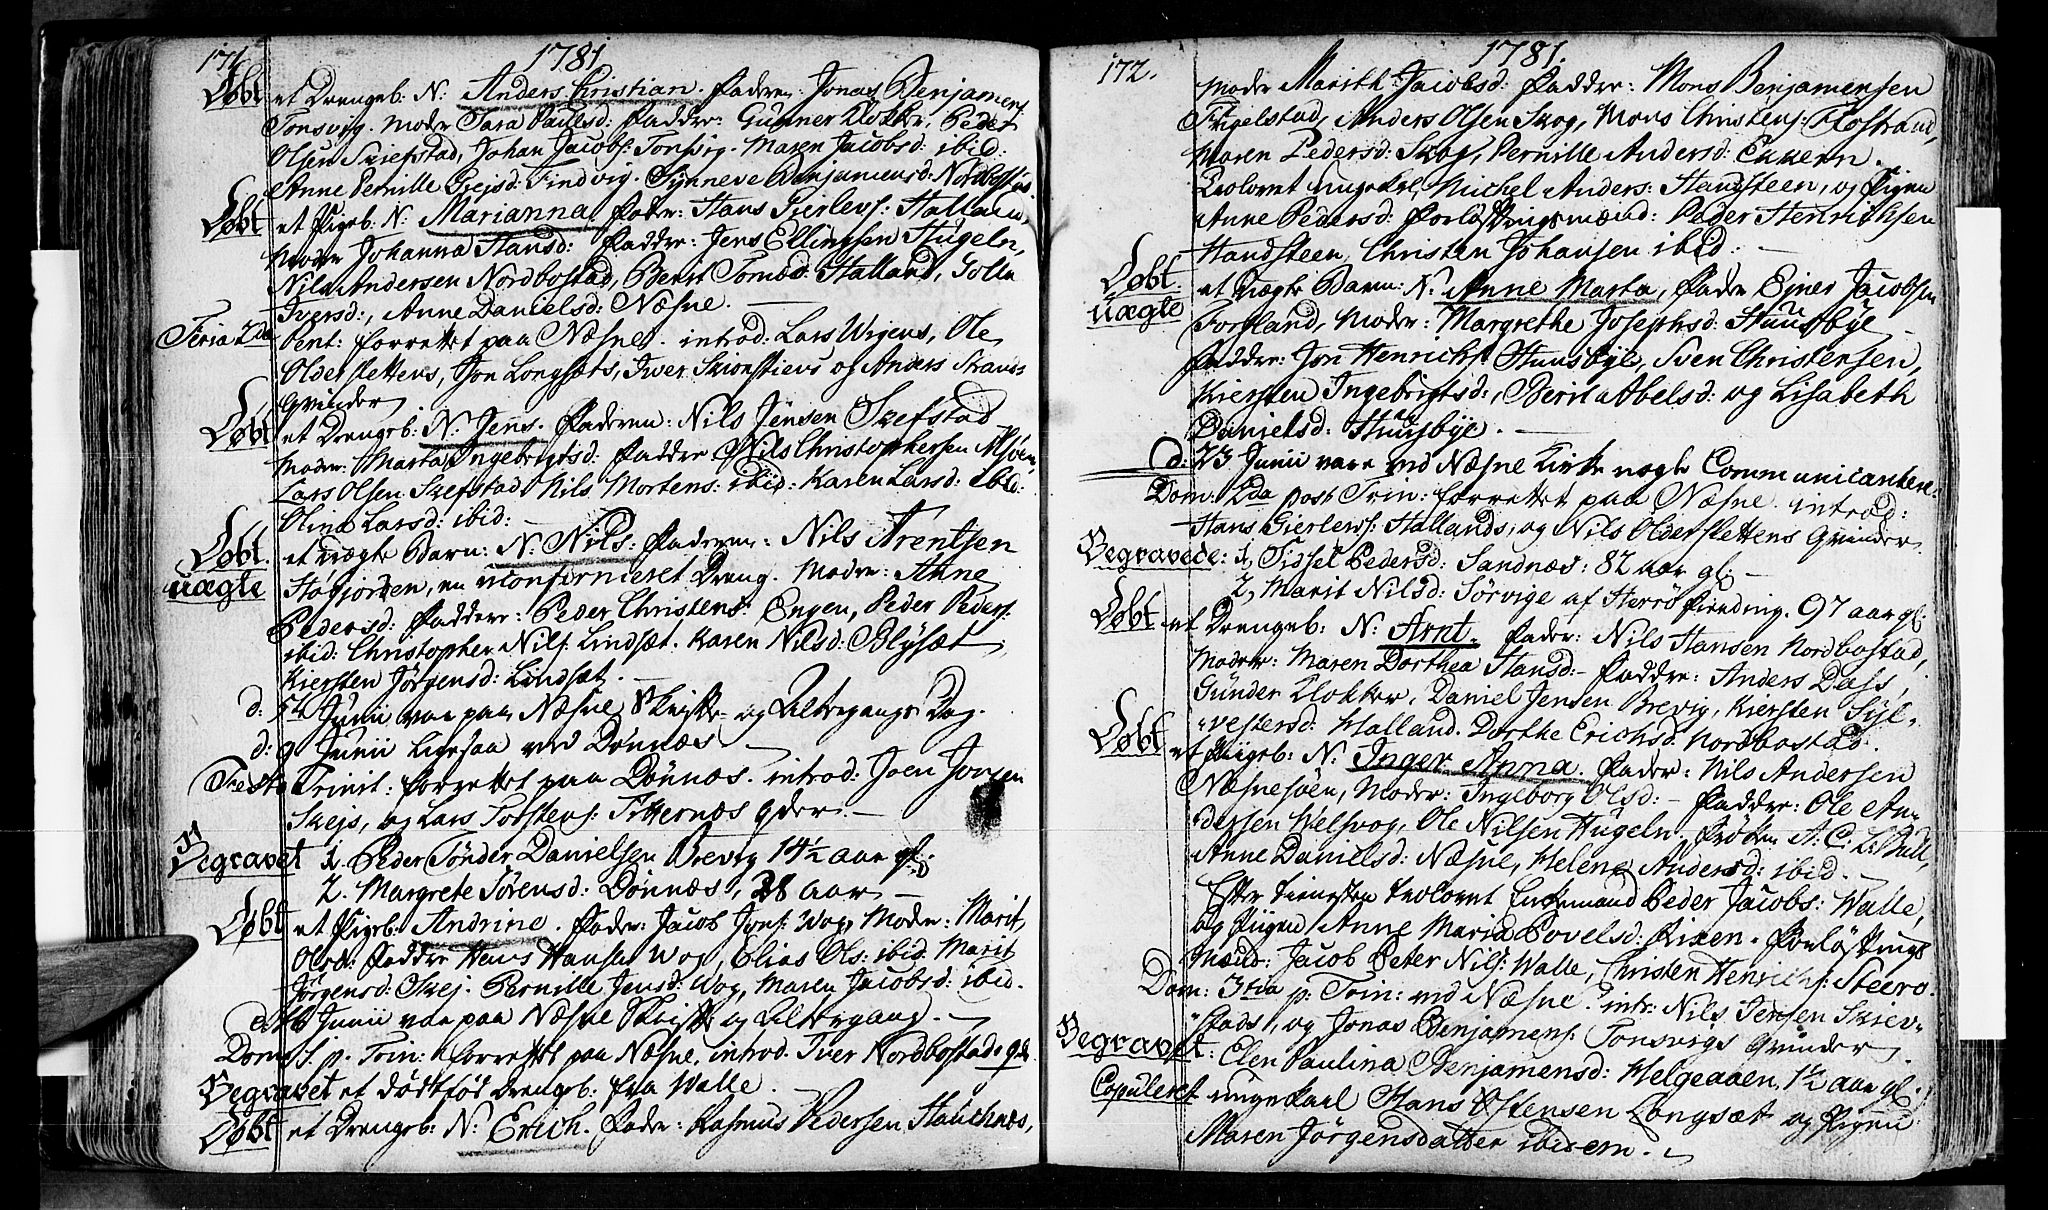 171. 1781
Døbt et Drengeb: N: Anders Christian. Faderen: Jonas Benjamens:
Tonsvig. Moder Sara Paulsd: Faddre: Gunner Klokker, Peder
Olsen Skiefstad, Johan Jacobs: Tonsvig. Maren Jacobsd: ibid:
Anne Pernille Sejsd: Findvig. Synneve Benjamensd: Nordbostad
Døbt et Pigeb: N: Marianna, Fader: Hans Gierlevs: Halland
Moder Johanna Hansd: Faddre: Jens Ellingsen Hugeln,
Nils Andersen Nordbostad, Berit Tomæd: Halland, Golla
Iversd:, Anne Danielsd: Næsne.
Feria 2da Pent: forrettet paa Næsne. introd: Lars Wigens, Ole
Olderslettens, Jon Longsæts, Iver Skionstiens og Anders Strands
Qvinder
Døbt et Drengeb: N: Jens. Faderen: Nils Jensen Skefstad
Moder: Marta Ingebrigtsd: Faddre Nils Christophersen
Lars Olsen Skefstad Nils Mortens: ibid: Karen Larsd: ibid:
Olina Larsd: ibid:
Døbt et uægte Barn: N: Nils: Faderen: Nils Arentsen
uægte Høfjorden, en uconfirmeret Dreng. Moder: Anne
Pedersd: Faddere: Peder Christens: Engen, Peder Peders:
ibid: Christopher Nils: Lindsæt. Karen Nilsd: Blysæt
Kiersten Jørgensd: Lindsæt.
d: 5te Junii var paa Næsne Skrifte og Altergangs Dag.
d: 9 Junii ved Dønnæs
Festo Trinit: forrettet paa Dønnæs. introd: Joen Jonsen
Skejs, og Lars Torstens: Titternæs Qder.
Begravet 1. Peder Tønder Danielsen Brevig 14½ aar gl:
2. Margrete Sørensd: Dønnæs, 28 aar
Døbt et Pigeb: Andrine. Fader: Jacob Jons: Wog, Moder: Marit
Olsd: Faddre Hans Hansen Wog, Elias Ols: ibid: Marit
Jørgensd: Skej. Pernille Jensd: Wog, Maren Jacobsd: ibid.
Junii var paa Næsne Skrifte og Altergang.
Dom: 1. p. Trin: forrettet paa Næsne, introd. Iver Nordbostads qde.
Begravet et dødfød Drengeb: fra Walle.
Døbt et Drengeb: N: Erich. Fader: Rasmus Pedersen
172. 1781.
Moder Marith Jacobsd: Faddre: Mons Benjamensen
Anders Olsen Skog, Mons Christens: Flostrand,
Maren Pedersd: Skog, Pernille Andersd:
Trolovet ungekarl Michel Anders: Handsteen, og Pigen
Anne Pedersd: Forløftningsmænd: Peder Henrichsen
Handsteen, Christen Johansen ibid:
Døbt et uægte Barn: N: Anne Marta, Fader Ejner Jacobsen
uægte Forsland, Moder: Margrethe Josephsd: Huusbye
Faddre: Jon Henrichs: Huusbye, Sven Christensen,
Kiersten Ingebrigtsd:, Berit Abelsd: og Lisabeth
Danielsd: Huusbye.
d: 23 Junii vare ved Næsne Kirke nogle Communicantere.
Dom: 2da post Trin: forrettet paa Næsne. introd:
Hans Gierlevs: Hallands, og Nils Olderslettens Qvinder
Begravede: 1, Sidsel Pedersd: Sandnæs: 82 aar gl:
2, Marit Nilsd: Sørvige af Herrø fierding. 97 aar gl:
Døbt et Drengeb: N: Arnt. Fader: Nils Hansen Nordbostad,
Moder: Maren Dorthea Hansd: Faddre: Anders Dass,
Gunder Klokker, Daniel Jensen Brevig, Kiersten Syl-
vestersd: Halland. Dorthe Erichsd: Nordbostad.
Døbt et Pigeb: N: Inger Anna. Fader: Nils Andersen
Næsnesøen, Moder: Ingeborg Olsd: Faddre: Ole An-
dersen Welsvog, Ole Nilsen Hugeln, Frøken A: C: L: Bull,
Anne Danielsd: Næsne, Helena Andersd: ibid.
Efter tienesten trolovet Enkemand Peder Jacobs: Walle,
og Pigen Anne Maria Povelsd: Rixen. Forløftnings
Mænd: Jacob Peter Nils: Walle, Christen Henrichs: Steero.
Dom: 3tia p: Trin: ved Næsne intr: Nils Jensen Skiev-
stads, og Jonas Benjamens: Tonsvigs Qvinder
Begravet: Elen Paulina Benjamensd: Helgeaaen, 1½ aar gl:
Copuleret ungekarl Hans Ostensen Longsæt og Pigen
Maren Jørgensdatter ibidem.